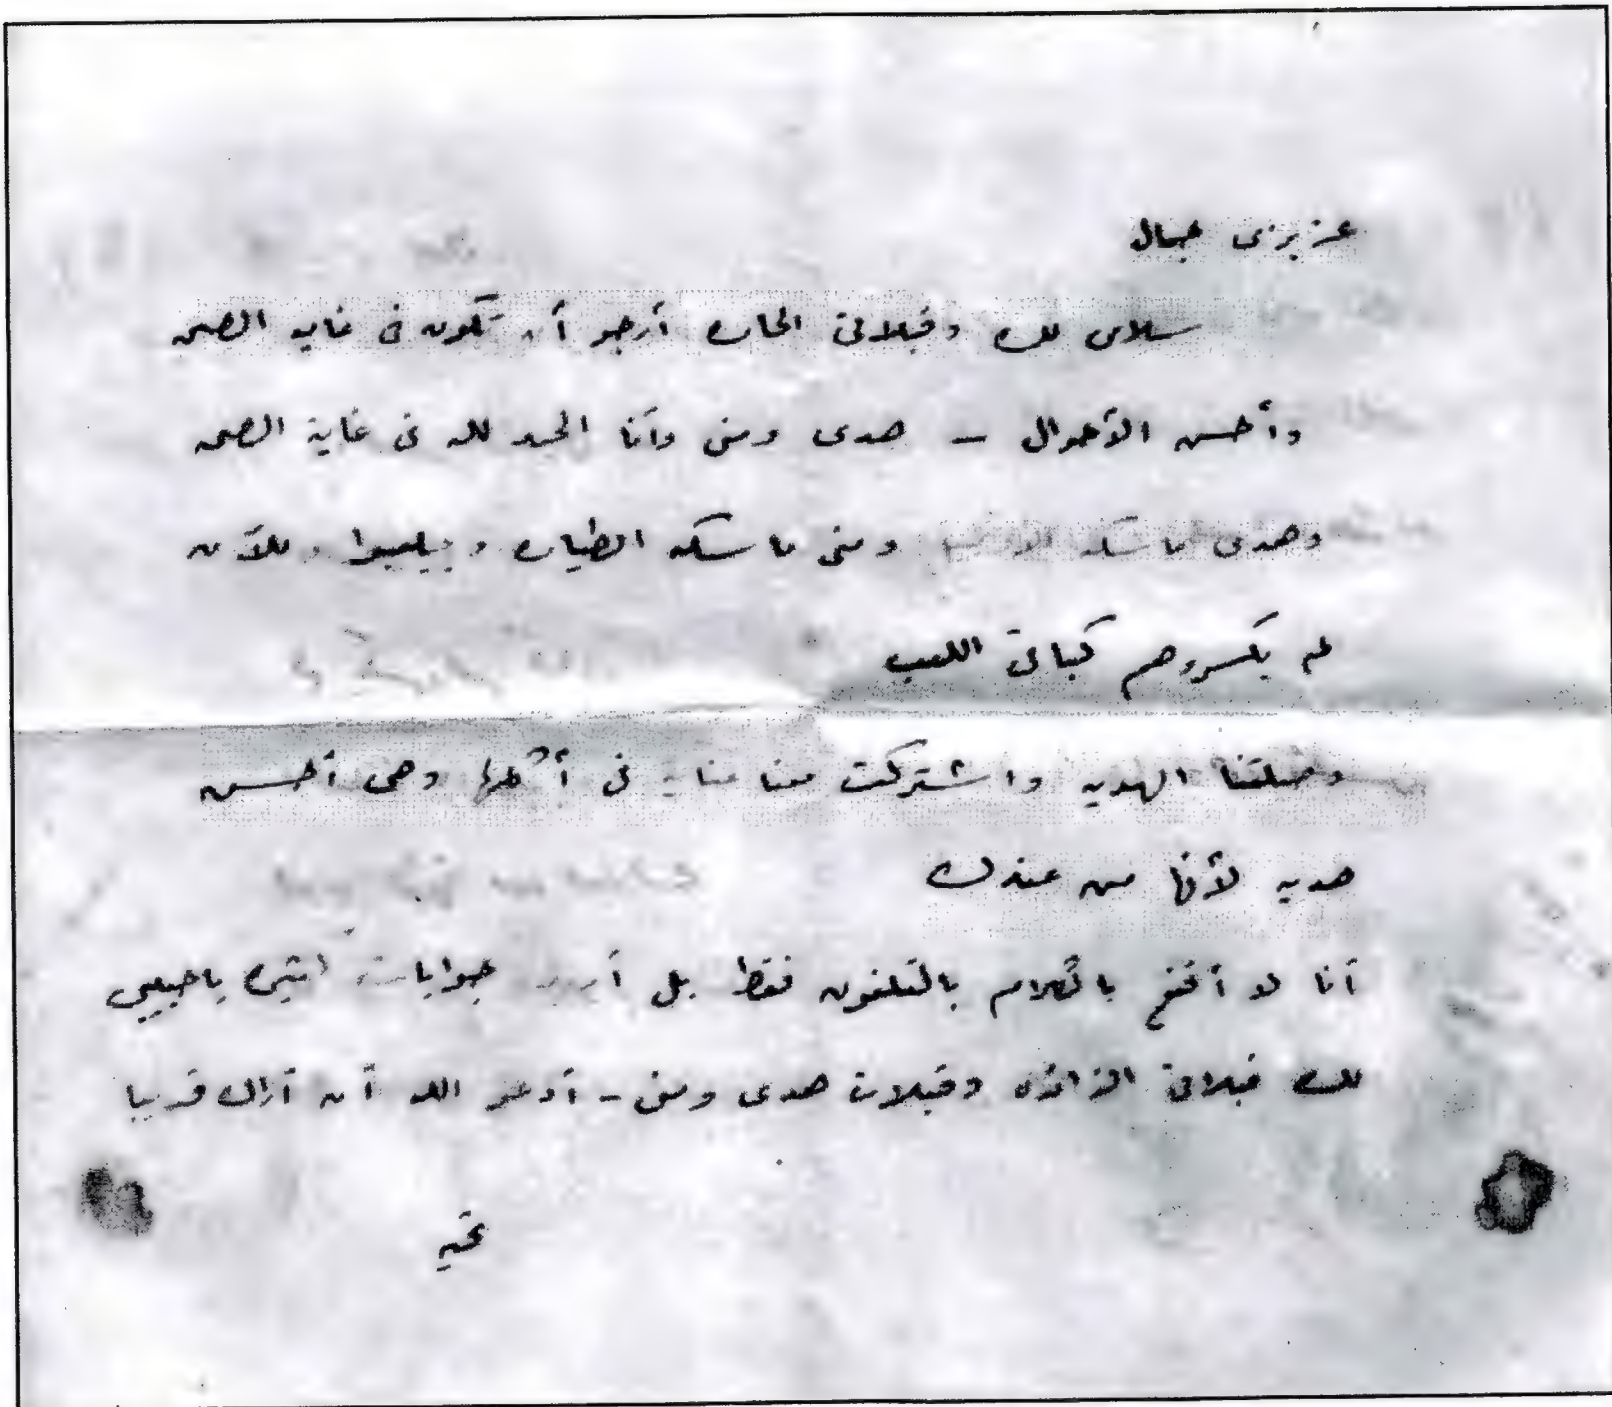 عزيزى جمال
سلامى لك وقبلاتى الحاره أرجو أن تكون فى غاية الصحه
وأحسن الأحوال - هدى ومنى وأنا الحمد لله فى غاية الصحه
وهدى ماسكه ومنى ماسكه الطياره وبيلعبوا وللآن
لم يكسروهم كباقى اللعب
وصلتنا الهديه واشتركت معنا فى أكلها وهى أحسن
هديه لأنها من عندك
أنا لا أقتنع بالكلام بالتلفون فقط بل أريد جوابات ياحبيبى
لك قبلاتى الزائده وقبلات هدى ومنى - أدعو الله أن أراك قريبا
تحيه